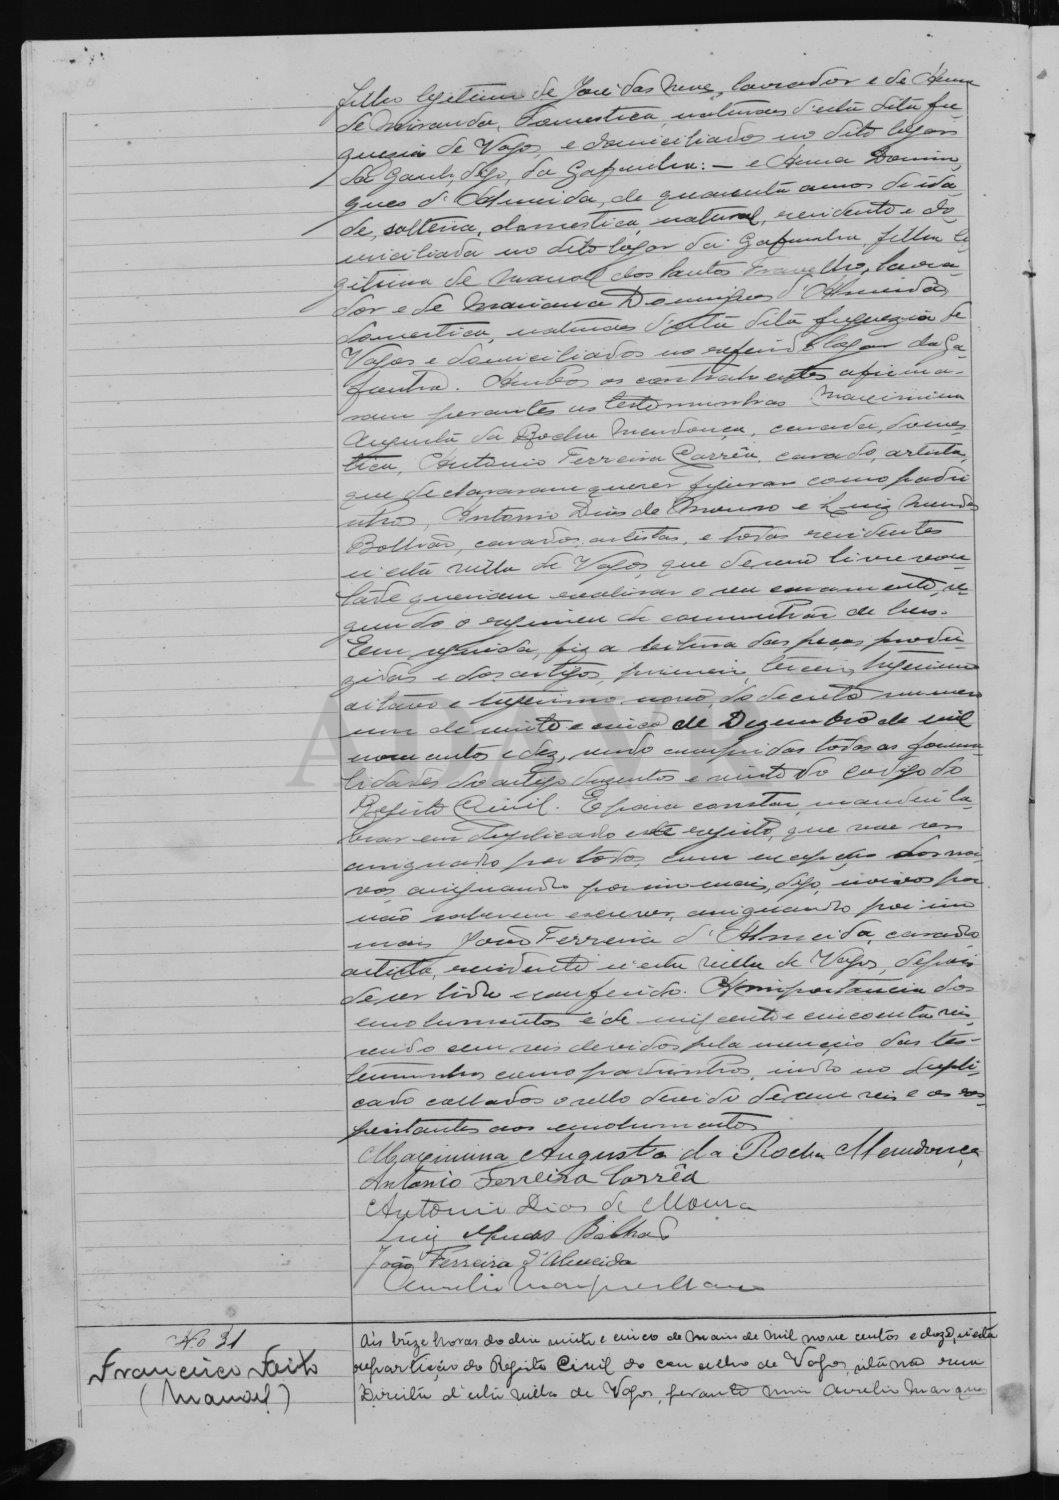 filho legitimo de José das Neves, lavrador e de Anna
de Miranda, domestica, naturaes d'esta dita fre-
guezia de Vagos, e domiciliados no dito logar
da digo, da Gafanha: — e Anna Domin-
gues d'Almeida, de quarenta annos de ida-
de, solteira, domestica, natural, residente e do-
miciliada no dito logar da Gafanha, filha le-
gitima de Manoel dos Santos lavra-
dor e de Marianna Domingues d'Almeida
domestica, naturaes d'esta dita freguezia de
Vagos e domiciliados no referido logar da Ga-
fanha. Ambos os contrahentes afirma-
ram perante as testemunhas Maximina
Augusta da Rocha Mendonça, casada, domes-
tica, Antonio Ferreira Corrêa, casado, artista,
que declararam querer figurar como padri-
nhos, Antonio Dias de Moura e Luiz Mendes
Bolhão, casados, artistas, e todos residentes
n'esta villa de Vagos, que de sua livre von-
tade queriam realisar o seu casamento, se-
gundo o regimen da communhão de bens.
Em seguida, fiz a leitura das peças produ-
zidas e dos artigos, primeiro, terceiro, trigesimo
oitavo e trigesimo nono, do decreto numero
um de vinte e cinco de Dezembro de mil
nove centos e dez, sendo cumpridas todas as forma-
lidades do artigo duzentos e vinte do codigo do
Registo Civil. E para constar, mandei la-
vrar em duplicado este registo, que vae ser
assignado por todos, com excepção dos noi-
vos, assignando por mais, digo, noivos por
não saberem escrever, assignando por
mais João Ferreira d'Almeida, casado
artista, residente n'esta villa de Vagos, depois
de ser lido e conferido. A importancia dos
emolumentos é de mil cento e cincoenta reis
sendo cem reis devidos pela menção das tes-
temunhas como padrinhos, indo no dupli-
cado collados o sello devido de cem reis e os res-
peitantes aos emolumentos
Maximina Augusta da Rocha Mendonça
Antonio Ferreira Corrêa
Antonio Dias de Moura
Luiz Mendes Bolhão
João Ferreira d'Almeida
Aurelio Marques
No 31
Francisco Feito
(Manoel)
Ás treze horas do dia vinte e cinco de Maio de mil nove centos e doze, n'esta
repartição do Registo Civil do concelho de Vagos, sita na rua
Direita d'esta villa de Vagos, perante mim Aurelio Marques